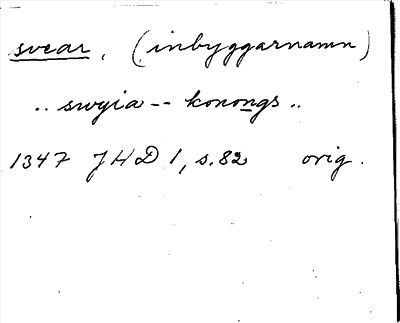 svear, (inbyggarnamn)
.. swyia -- konongs ..
1347 JHD 1, s.82 orig.